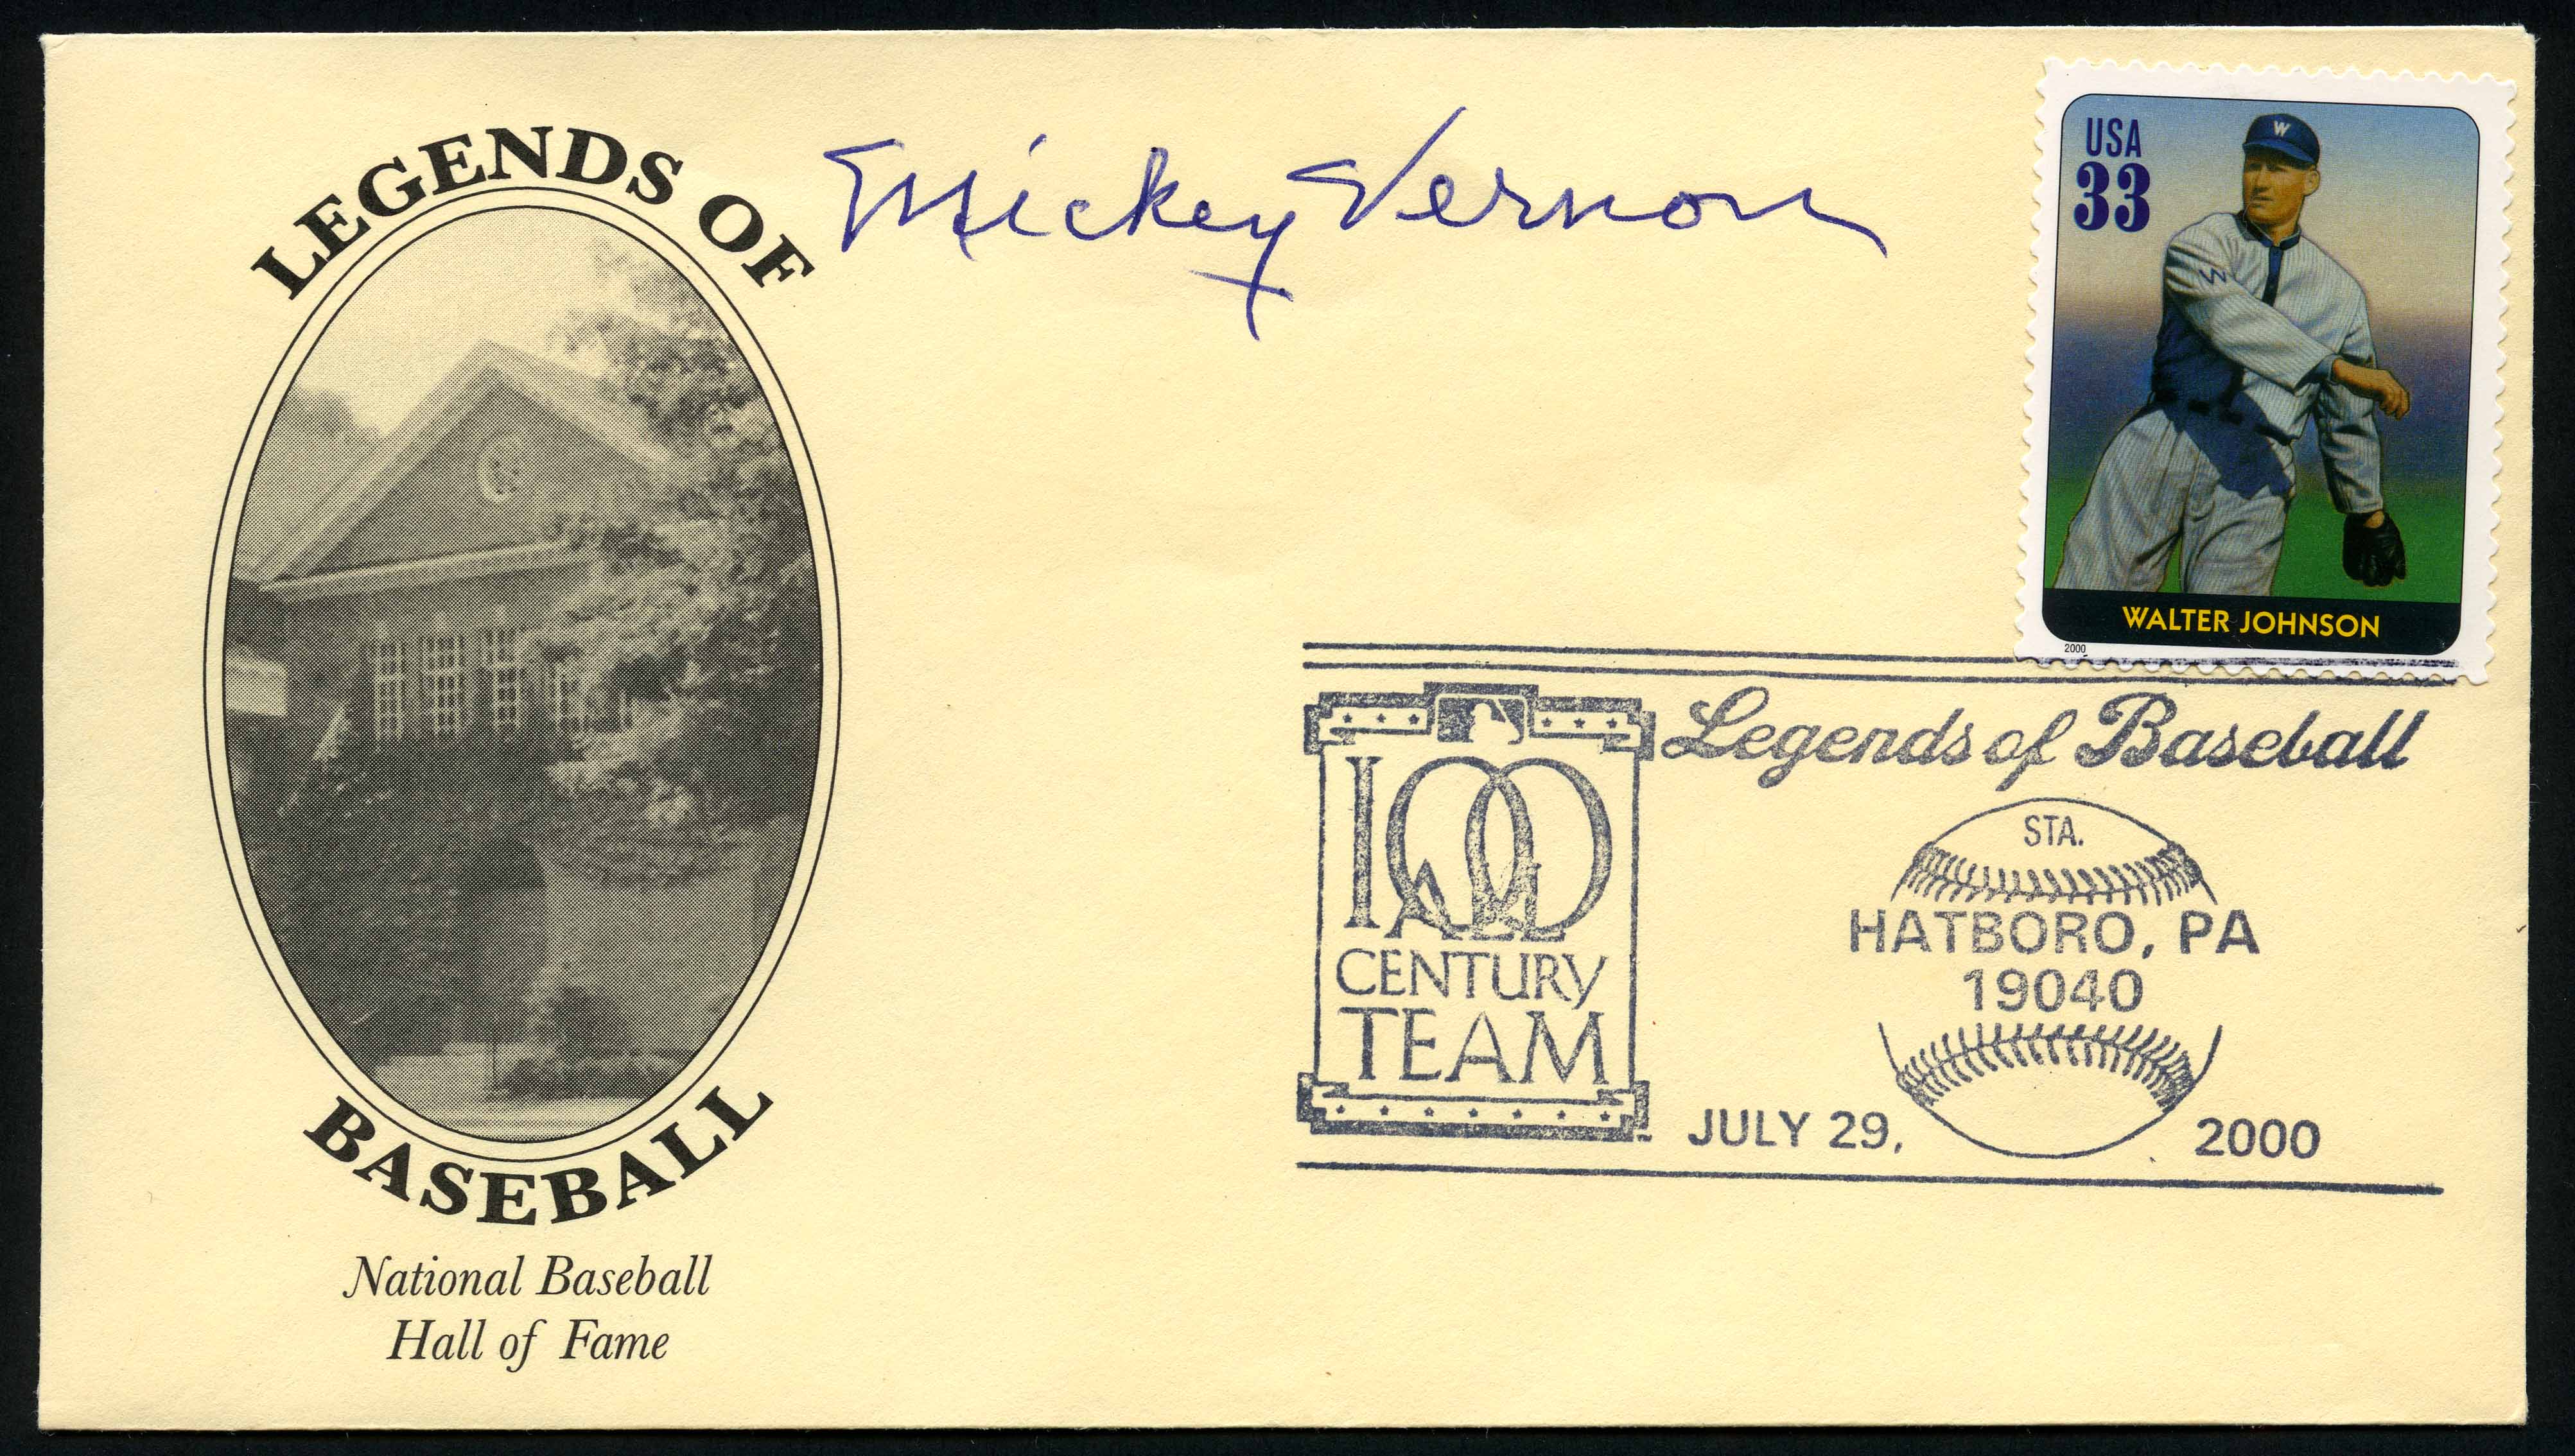 LEGENDS OF
BASEBALL
National Baseball
Hall of Fame
Mickey Vernon
USA
33
W
W
WALTER JOHNSON
2000
Legends of Baseball
100
ALL
CENTURY
TEAM
STA.
HATBORO, PA
19040
JULY 29, 2000